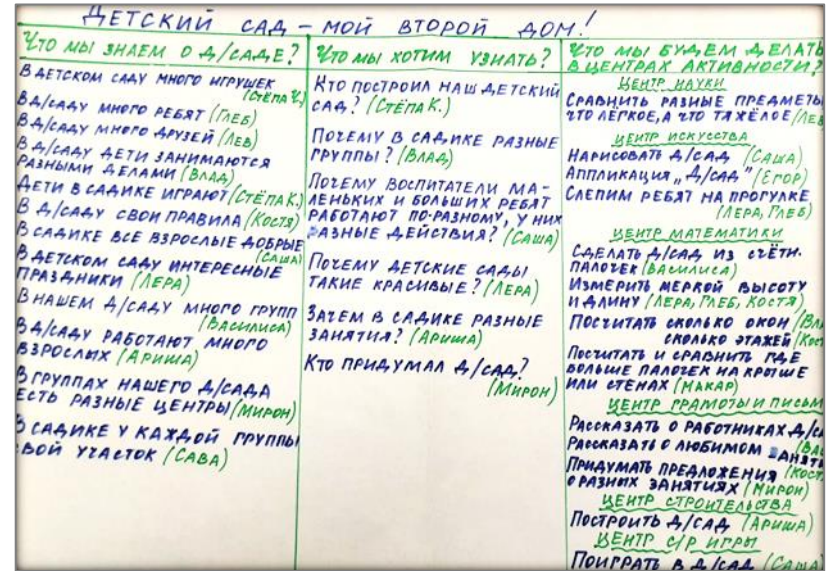 ДЕТСКИЙ САД – МОЙ ВТОРОЙ ДОМ!
ЧТО МЫ ЗНАЕМ О Д/САДЕ?
В ДЕТСКОМ САДУ МНОГО ИГРУШЕК
(СТЁПА Ч.)
В Д/САДУ МНОГО РЕБЯТ (ГЛЕБ)
В Д/САДУ МНОГО ДРУЗЕЙ (ЛЕВ)
В Д/САДУ ДЕТИ ЗАНИМАЮТСЯ
РАЗНЫМИ ДЕЛАМИ (ВЛАД)
ДЕТИ В САДИКЕ ИГРАЮТ (СТЁПА К.)
В Д/САДУ СВОИ ПРАВИЛА (КОСТЯ)
В САДИКЕ ВСЕ ВЗРОСЛЫЕ ДОБРЫЕ
(САША)
В ДЕТСКОМ САДУ ИНТЕРЕСНЫЕ
ПРАЗДНИКИ (ЛЕРА)
В НАШЕМ Д/САДУ МНОГО ГРУПП
(ВАСИЛИСА)
В Д/САДУ РАБОТАЮТ МНОГО
ВЗРОСЛЫХ (АРИША)
В ГРУППАХ НАШЕГО Д/САДА
ЕСТЬ РАЗНЫЕ ЦЕНТРЫ (МИРОН)
В САДИКЕ У КАЖДОЙ ГРУППЫ
СВОЙ УЧАСТОК (САВА)
ЧТО МЫ ХОТИМ УЗНАТЬ?
КТО ПОСТРОИЛ НАШ ДЕТСКИЙ
САД? (СТЁПА К.)
ПОЧЕМУ В САДИКЕ РАЗНЫЕ
ГРУППЫ? (ВЛАД)
ПОЧЕМУ ВОСПИТАТЕЛИ МА-
ЛЕНЬКИХ И БОЛЬШИХ РЕБЯТ
РАБОТАЮТ ПО-РАЗНОМУ, У НИХ
РАЗНЫЕ ДЕЙСТВИЯ? (САША)
ПОЧЕМУ ДЕТСКИЕ САДЫ
ТАКИЕ КРАСИВЫЕ? (ЛЕРА)
ЗАЧЕМ В САДИКЕ РАЗНЫЕ
ЗАНЯТИЯ? (АРИША)
КТО ПРИДУМАЛ Д/САД?
(МИРОН)
ЧТО МЫ БУДЕМ ДЕЛАТЬ
В ЦЕНТРАХ АКТИВНОСТИ?
ЦЕНТР НАУКИ
СРАВНИТЬ РАЗНЫЕ ПРЕДМЕТЫ
ЧТО ЛЁГКОЕ, А ЧТО ТЯЖЁЛОЕ (ЛЕВ
ЦЕНТР ИСКУССТВА
НАРИСОВАТЬ Д/САД (САША)
АППЛИКАЦИЯ „Д/САД" (ЕГОР)
СЛЕПИМ РЕБЯТ НА ПРОГУЛКЕ
(ЛЕРА, ГЛЕБ)
ЦЕНТР МАТЕМАТИКИ
СДЕЛАТЬ Д/САД ИЗ СЧЁТН.
ПАЛОЧЕК (ВАСИЛИСА)
ИЗМЕРИТЬ МЕРКОЙ ВЫСОТУ
И ДЛИНУ (ЛЕРА, ГЛЕБ, КОСТЯ)
ПОСЧИТАТЬ СКОЛЬКО ОКОН (ВЛ
СКОЛЬКО ЭТАЖЕЙ (КОС
ПОСЧИТАТЬ И СРАВНИТЬ ГДЕ
БОЛЬШЕ ПАЛОЧЕК НА КРЫШЕ
ИЛИ СТЕНАХ (МАКАР)
ЦЕНТР ГРАМОТЫ И ПИСЬМ
РАССКАЗАТЬ О РАБОТНИКАХ Д/СА
(ВА
РАССКАЗАТЬ О ЛЮБИМОМ ЗАНЯТ
ПРИДУМАТЬ ПРЕДЛОЖЕНИЯ (КОСТ
О РАЗНЫХ ЗАНЯТИЯХ (МИРОН)
ЦЕНТР СТРОИТЕЛЬСТВА
ПОСТРОИТЬ Д/САД (АРИША)
ЦЕНТР С/Р ИГРЫ
ПОИГРАТЬ В Д/САД (САША)